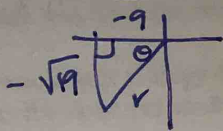 -9
θ
-√19
r